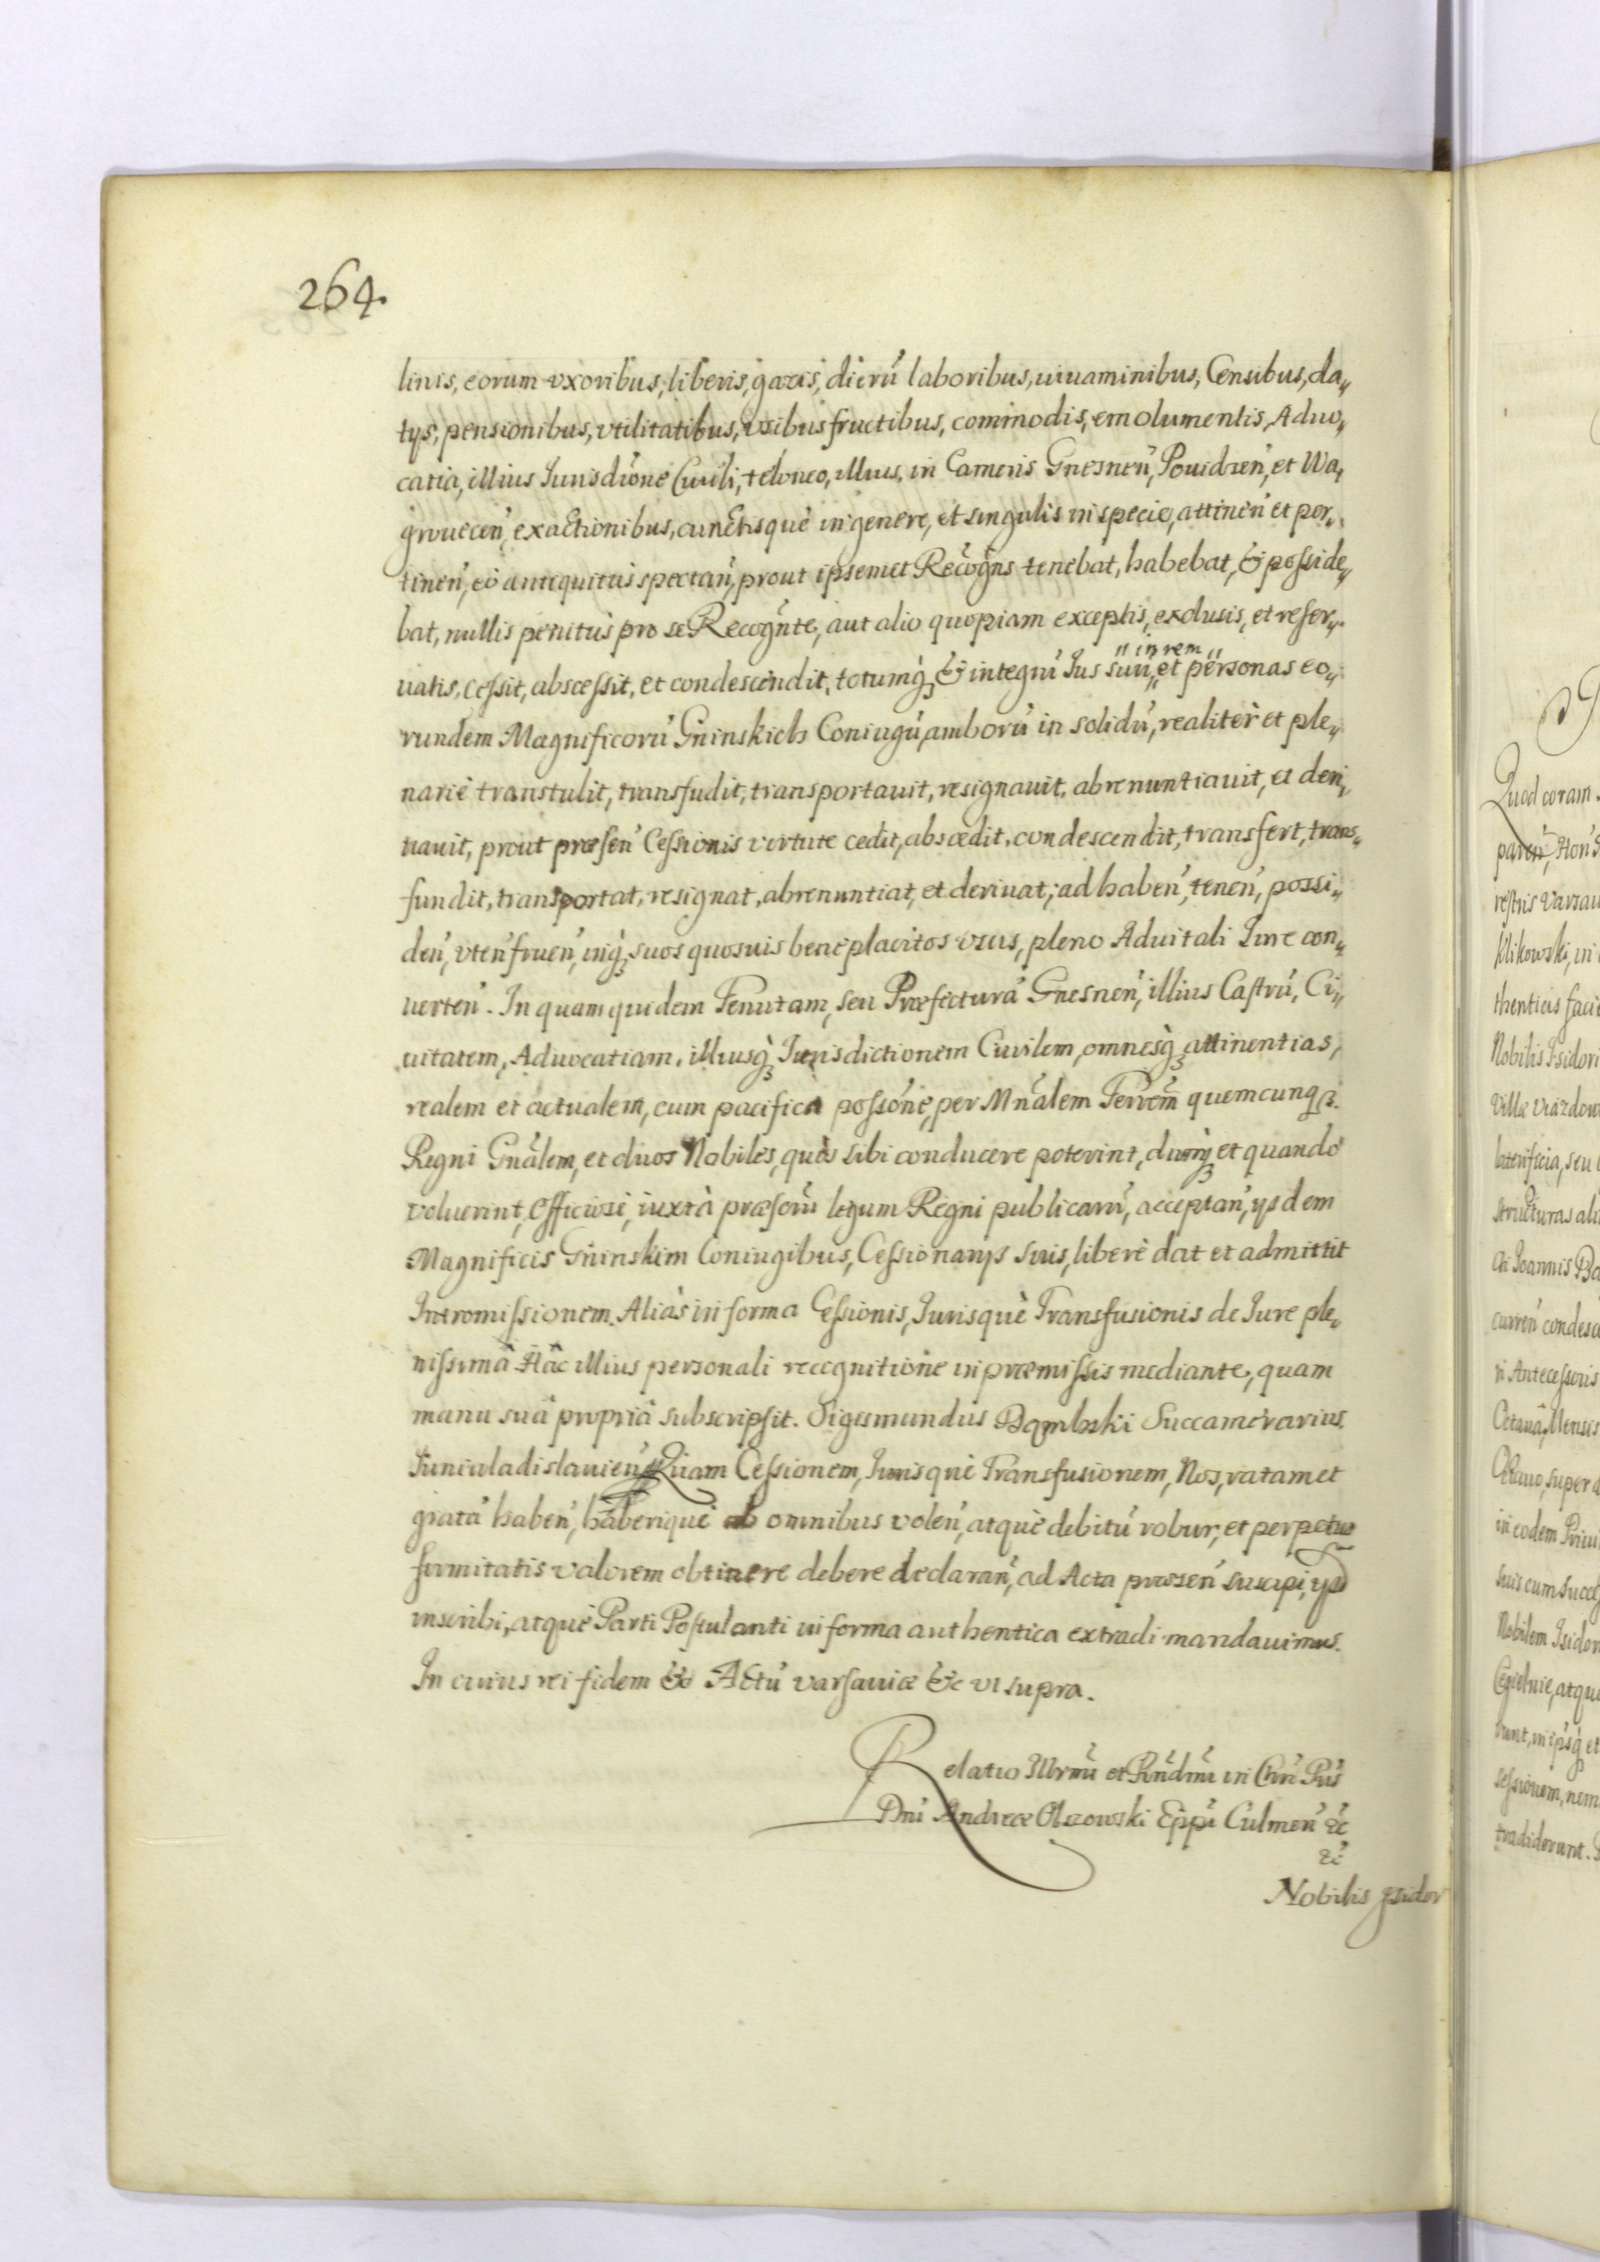 264.
linis, eorum uxoribus, liberis, gazis, dierũ laboribus, iuvaminibus, Censibus, da„
tys, pensionibus, vtilitatibus, vsibusfructibus, commodis, emolumentis, Aduo„
catia, illius Jurisdiõne Ciuili, teloneo, illius, in Cameris Gnesneñ, Pouidzeñ, et Wa„
groweceñ, exactionibus, cunctisquè in genere, et singulis in specie, attineñ et per„
tineñ, eò antiquitùs spectañ, prout ipsemet Recogñs tenebat, habebat, & posside„
bat, nullis penitùs pro se Recogñte, aut alio quopiam exceptis, exclusis, et reser„
uatis, cessit, abscessit, et condescendit, totumq̃ & integrũ Ius suũ, „in rem„ et personas eo„
rundem Magnificorũ Gninskich Coniugũ, amborũ in solidũ, realitèr et ple„
nariè transtulit, transfudit, transportauit, resignauit, abrenuntiauit, et deri„
uauit, prout præseñ Cessionis virtute cedit, abscedit, condescendit, transfert, trans„
fundit, transportat, resignat, abrenuntiat, et deriuat; ad habeñ, teneñ, possi„
deñ, vteñfrueñ, inq̃ suos quosuis beneplacitos vsus, pleno Aduitali Iure con„
uerteñ. In quam quidem Tenutam, seu Præfecturã Gnesneñ, illius Castrũ, Ci„
uitatem, Aduocatiam, illiusq̃ Iurisdictionem Ciuilem, omnesq̃ attinentias,
realem et actualem, cum pacifica possiõne, per Mñalem Terrẽm quemcunq̃
Regni Gñalem, et duos Nobiles, quos sibi conducere poterint, dumq̃ et quandò
voluerint, Efficiosè, iuxtà præscrũ legum Regni publicarũ, acceptañ, ysdem
Magnificis Gninskim Coniugibus, Cessionarys suis, liberè dat et admittit
Intromissionem. Aliàs in forma Cessionis, Iurisquè Transfusionis de Iure ple„
nissimâ Hâc illius personali recognitione in præmissis mediante, quam
manu suâ propriâ subscripsit. Sigesmundus Dąmbski Succamerarius
Iuniuladislauieñ. Quam Cessionem, Iurisquè Transfusionem, Nos, ratam et
gratã habeñ, haberiquè ab omnibus voleñ, atquè debitũ robur, et perpetuæ
firmitatis valorem obtinere debere declarañ, ad Acta præseñ suscipi, ysq̃
inscribi, atquè Parti Postulanti in forma authentica extradi mandauimus.
In cuius rei fidem &c Actũ varsauiæ &c vt supra.
Relatio Illrmi et Rñdmi in Chrõ Pris
Dñi Andreæ Olszowski Eppi Culmeñ &c
&c
Nobilis Isidor
Quod coram
pareñ, Hon
restris Varsau
klikowski, in
thenticis faci
Nobilis Isidori
Villæ Viazdow
laterificia, seu
structuras ali
ci Joannis Ba
curreñ condesc
ri Antecessoris
Cetauâ, Mensis
in eodem Priui
suis cum succes
Nobilem Isidor
Cegielnie, atque
runt, in ipsq̃ et
sessionem, nem
tradiderunt.